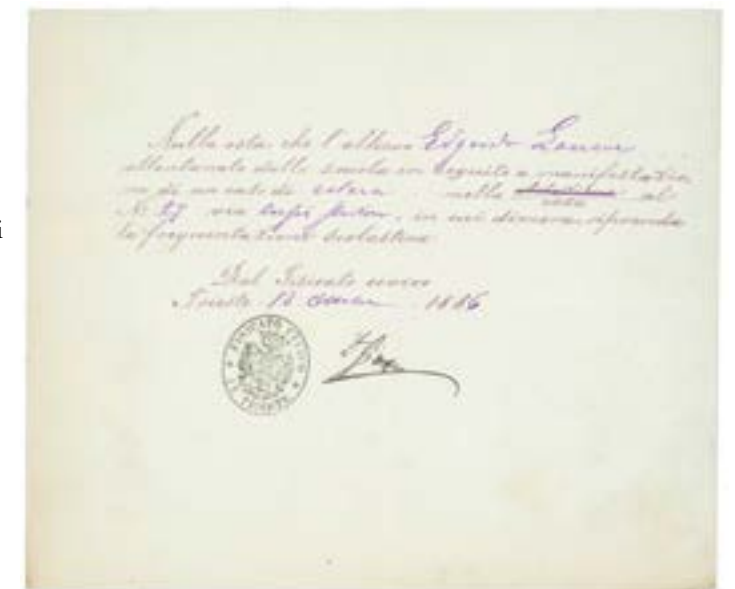 Nulla osta che l'allievo Egidio
allontanato dalla scuola in seguito a manifestazio
ne di un caso di colera nella casa al
N. 27 via , in cui dimora, riprenda
la frequentazione scolastica.
Dal Fisicato civico
Trieste 13 1886
FISICATO CIVICO
TRIESTE
i